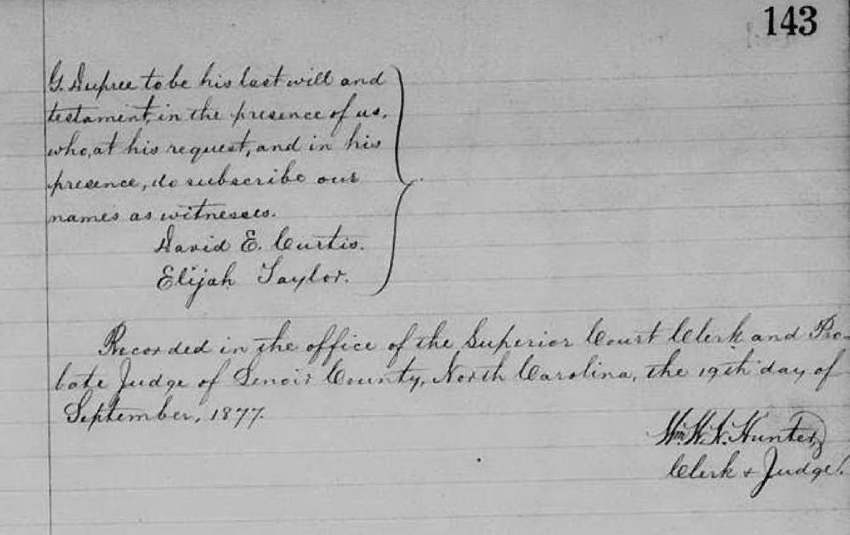 143
G. Dupree to be his last will and
testament, in the presence of us,
who, at his request, and in his
presence, do subscribe our
names as witnesses.
David E. Curtis.
Elijah Taylor.
Recorded in the office of the Superior Court Clerk and Pro-
bate Judge of Lenoir County, North Carolina, the 19th day of
September, 1877.
Wm. W. N. Hunter,
Clerk & Judge.